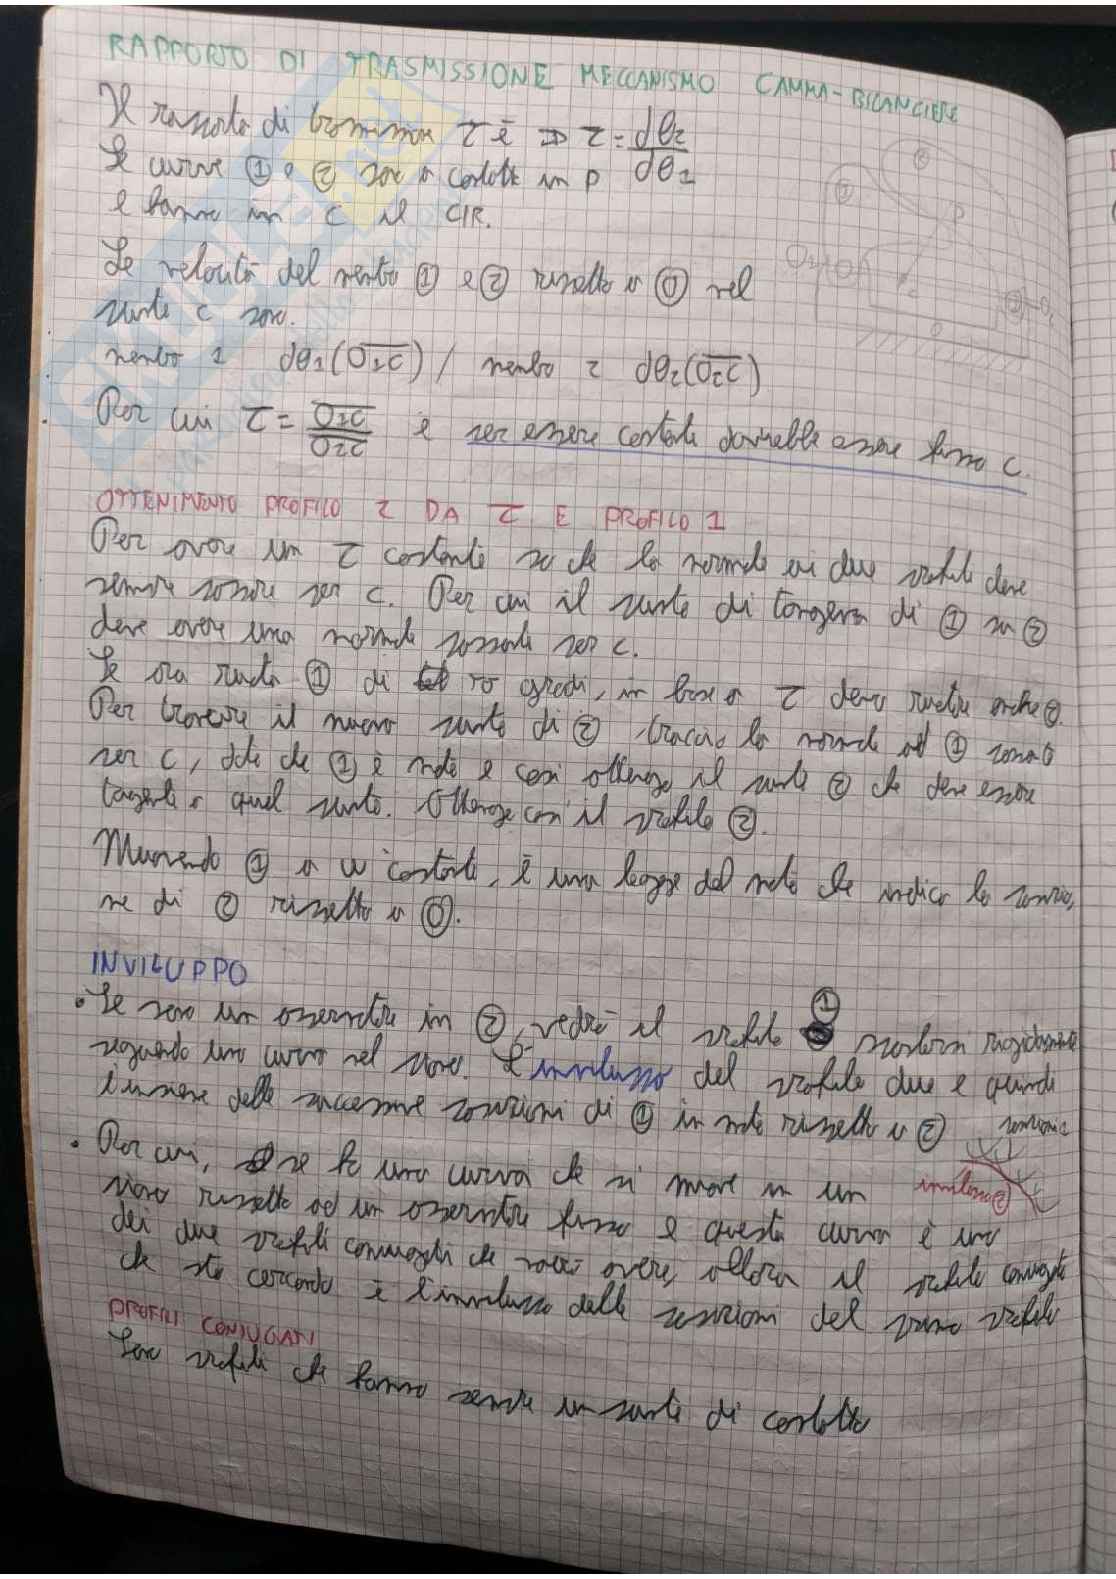 RAPPORTO DI TRASMISSIONE MECCANISMO CAMMA-BILANCIERE
Il rapporto di trasmissione τ è ⇒ τ = dθ2/dθ1
Le curve ① e ② sono a contatto in P
e hanno in C il CIR.
Le velocità del membro ① e ② rispetto a ⓪ nel
punto C sono.
membro 1 dθ1(O1C) / membro 2 dθ2(O2C)
Per cui τ = O1C/O2C e per essere costante dovrebbe essere fisso C.
OTTENIMENTO PROFILO 2 DA τ E PROFILO 1
Per avere un τ costante so che la normale ai due profili deve
sempre passare per C. Per cui il punto di tangenza di ① su ②
deve avere una normale passante per C.
Se ora ruoto ① di 10 gradi, in base a τ deve ruotare anche ②.
Per trovare il nuovo punto di ② traccio la normale ad ① passante
per C, dato che ① è noto e così ottengo il punto ② che deve essere
tangente a quel punto. Ottengo così il profilo ②.
Muovendo ① a ω costante, è una legge del moto che indica la posizio,
ne di ② rispetto a ⓪.
INVILUPPO
• Se sono un osservatore in ②, vedrò il profilo ① spostarsi rigidamente
seguendo una curva nel piano. L'inviluppo del profilo due è quindi
l'insieme delle successive posizioni di ① in moto rispetto a ②
posizioni
• Per cui, se ho una curva che si muove in un
inviluppo ②
piano rispetto ad un osservatore fisso e questa curva è uno
dei due profili coniugati che voglio avere, allora il profilo coniugato
che sto cercando è l'inviluppo delle posizioni del primo profilo
PROFILI CONIUGATI
Sono profili che hanno sempre un punto di contatto